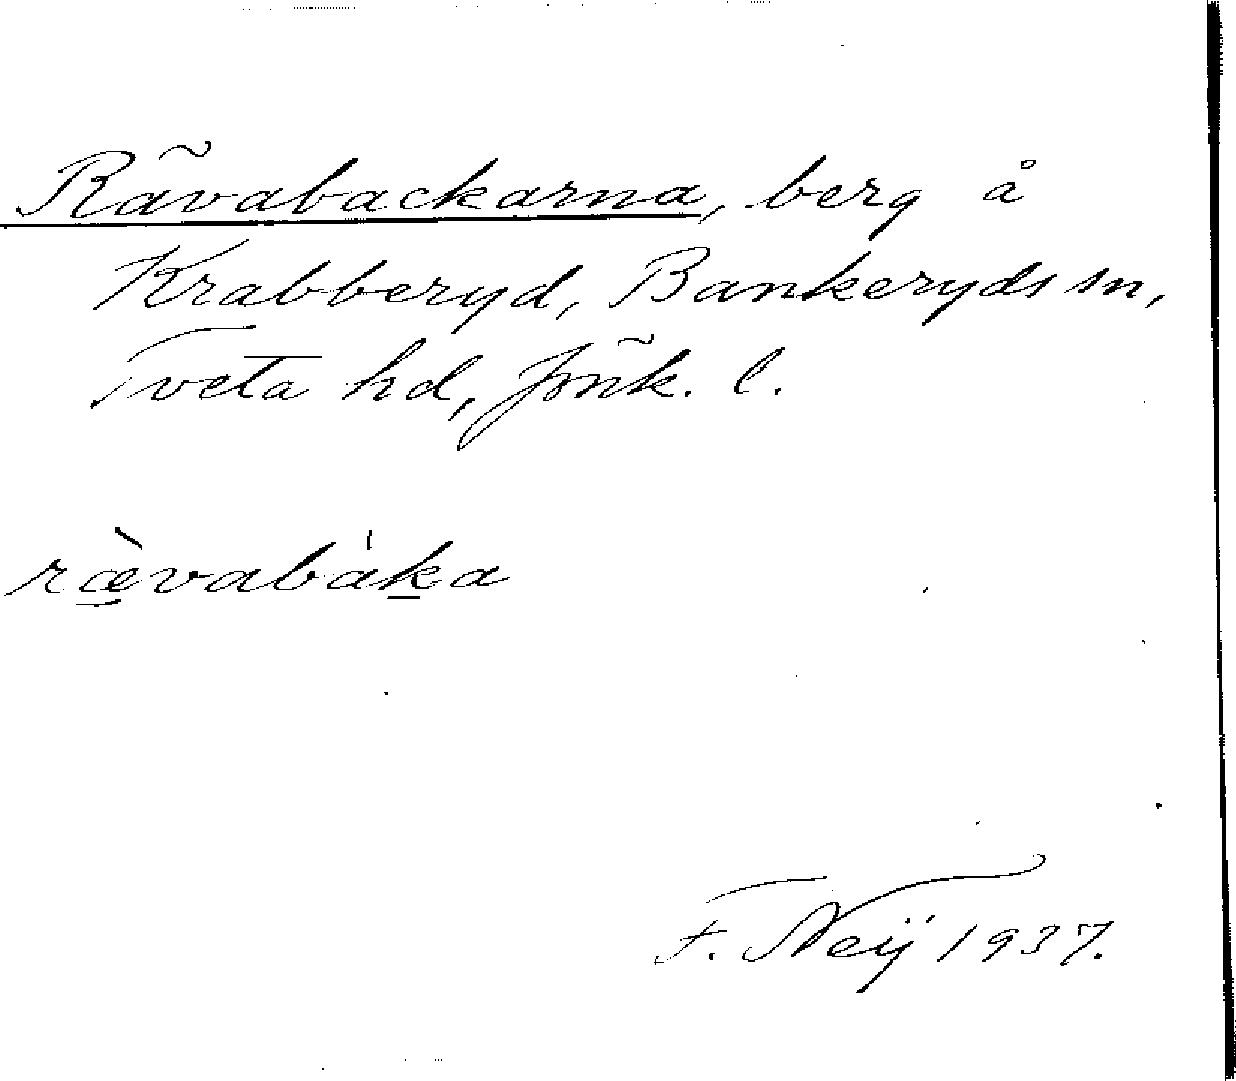 Rävabackarna, berg å
Krabberyd, Bankeryds sn,
Tveta hd, Jönk. l.
ræ̀vabáka
F. Neij 1937.